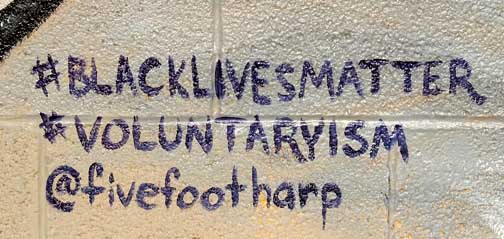 #BLACKLIVESMATTER
#VOLUNTARYISM
@fivefootharp